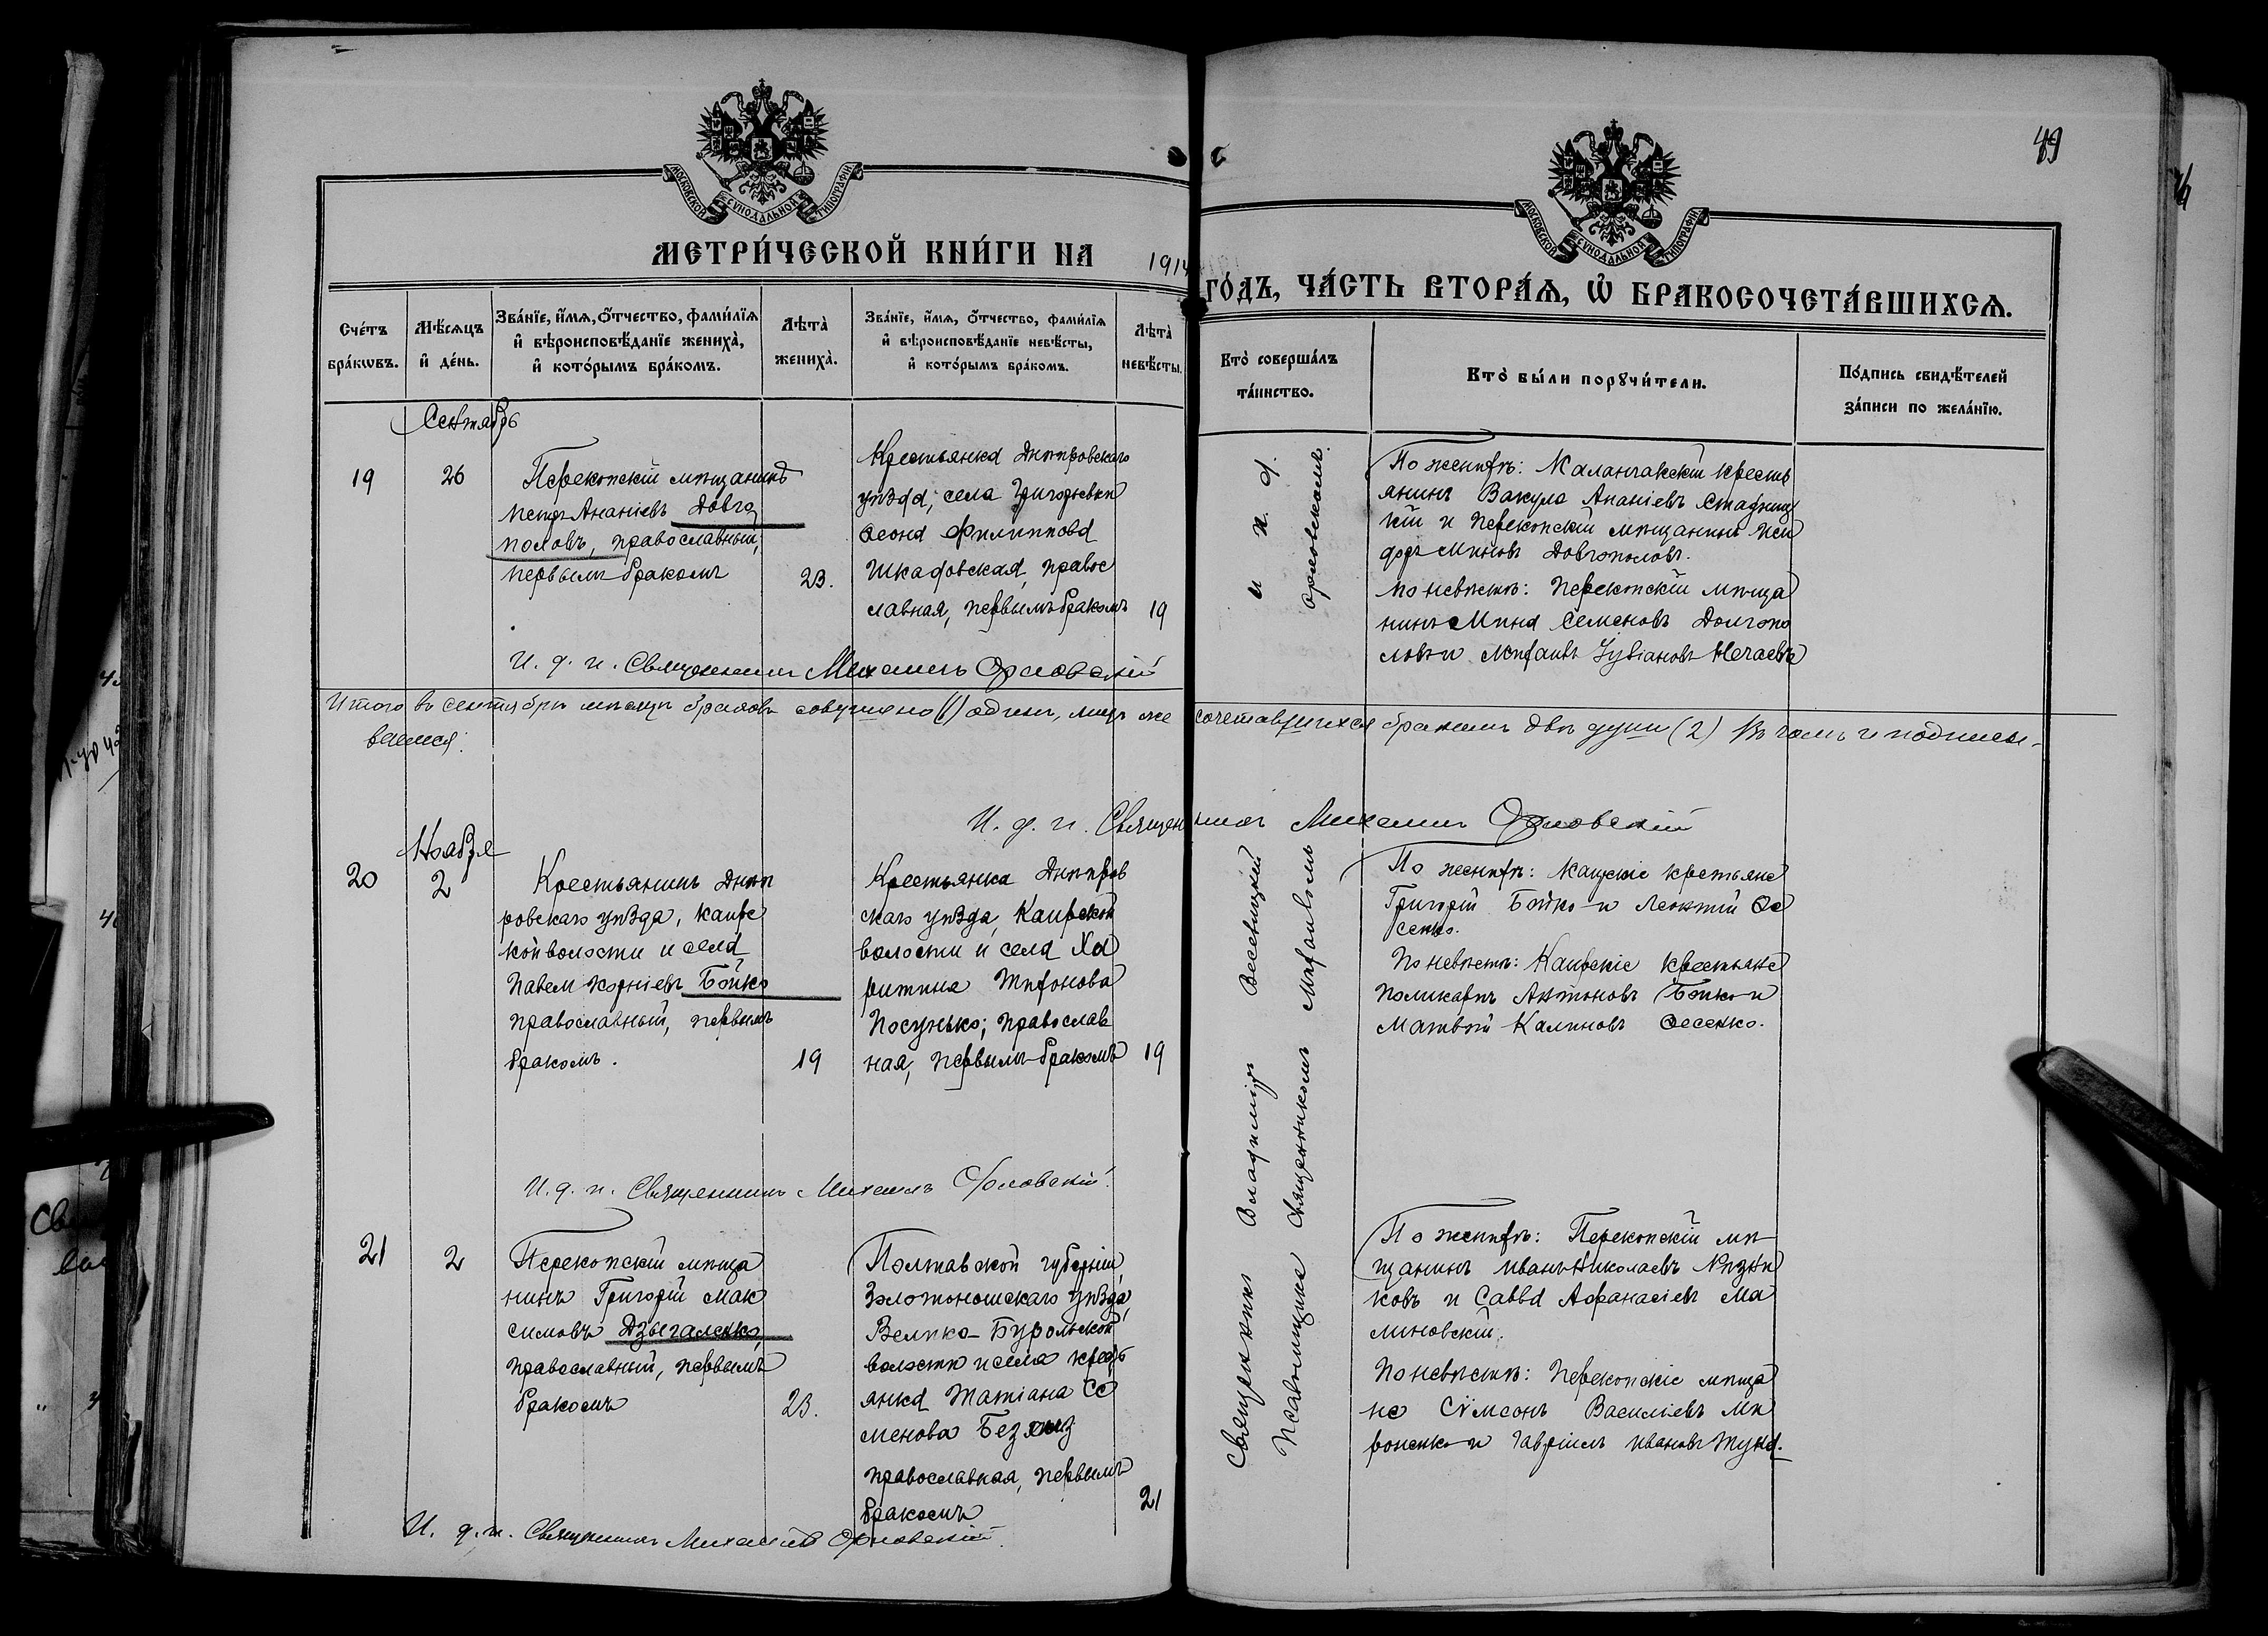 49
МОСКОВСКОЙ СѴНОДАЛЬНОЙ ТИПОГРАФІИ
МОСКОВСКОЙ СѴНОДАЛЬНОЙ ТИПОГРАФІИ
МЕТРИ́ЧЕСКОЙ КНИ́ГИ НА 1914 ГО́ДЪ, ЧА́СТЬ ВТОРА́Ѧ, Ѡ҆ БРАКОСОЧЕТА́ВШИХСѦ.
Сче́тъ бра́кѡвъ.
Мѣ́сѧцъ и҆ де́нь.
Зва́нїе, и҆́мѧ, ѻ҆́тчество, фами́лїѧ
и҆ вѣроисповѣ́данїе жениха̀,
и҆ кото́рымъ бра́комъ.
Лѣта̀ жениха̀.
Зва́нїе, и҆́мѧ, ѻ҆́тчество, фами́лїѧ
и҆ вѣроисповѣ́данїе невѣ́сты,
и҆ кото́рымъ бра́комъ.
Лѣта̀ невѣ́сты.
Кто̀ соверша́лъ
та́инство.
Кто̀ бы́ли порꙋчи́тели.
По́дпись свидѣ́телей
за́писи по жела́нїю.
Сентябрь
19
26
Перекопскій мѣщанинъ
Петръ Ананіевъ Довго
половъ, православный,
первымъ бракомъ
23.
Крестьянка Днѣпровскаго
уѣзда, села Григорьевки
Ѳеона Филиппова
Шкадовская, правос
лавная, первымъ бракомъ
19
и н. д.
Орловскимъ.
По женихѣ: Каланчакскій кресть
янинъ Вакула Ананіевъ Стадниц
кій и Перекопскій мѣщанинъ Иси
доръ Миновъ Довгополовъ.
По невѣстѣ: Перекопскій мѣща
нинъ Мина Семеновъ Долгопо
ловъ и Нечаевъ
И. д. н. Священникъ Михаилъ Орловскій
Итого въ сентябрѣ мѣсяцѣ браковъ совершено (1) одинъ, лицъ же сочетавшихся бракомъ двѣ души (2) Въ чемъ и подписы-
ваемся:
И. д. н. Священникъ Михаилъ Орловскій
Ноябрь
20
2
Крестьянинъ Днѣп
ровскаго уѣзда, Каирс
кой волости и села
Павелъ Корніевъ Бойко
православный, первымъ
бракомъ.
19
Крестьянка Днѣпров
скаго уѣзда, Каирской
волости и села Ха
ритина Тифонова
Посунько; православ
ная, первымъ бракомъ
19
Священникъ Владиміръ Весевицкій
Псаломщика Священникомъ
По женихѣ: Каирскіе крестьяне
Григорій Бойко и Леонтій Ѳе
сенко.
По невѣстѣ: Каирскіе крестьяне
Поликарпъ Антоновъ Бойко и
Матвѣй Калиновъ Ѳесенко.
И. д. н. Священникъ Михаилъ Орловскій.
21
2
Перекопскій мѣща
нинъ Григорій Мак
симовъ Дзыгаленко,
православный, первымъ
бракомъ
23.
Полтавской губерніи,
Золотоношскаго уѣзда,
Велико-Буромской
волости и села кресть
янка Татіана Се
менова
православная, первымъ
бракомъ
21
По женихѣ: Перекопскій мѣ
щанинъ Иванъ Николаевъ
ковъ и Савва Аѳанасіевъ Ма
линовскій.
По невѣстѣ: Перекопскіе мѣща
не Сѵмеонъ Василіевъ Ми
роненко и Гавріилъ Ивановъ
И. д. н. Священникъ Михаилъ Орловскій.